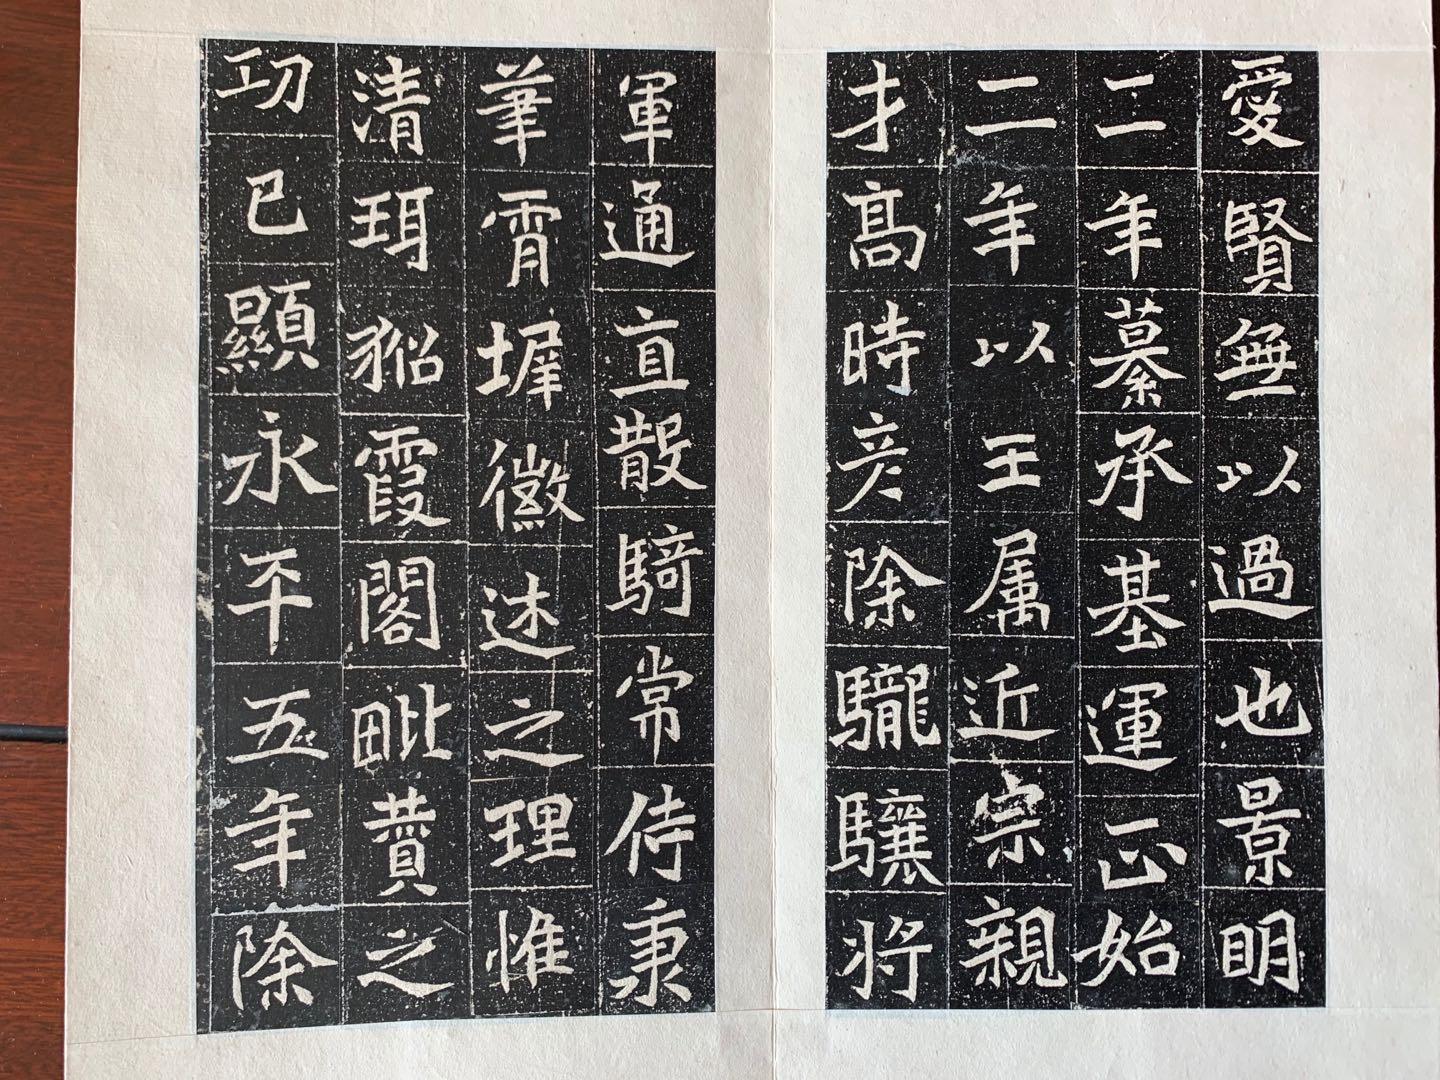 愛賢無以過也景明
二年纂承基運正始
二年以王属近宗親
才高時彦除驍驤將
軍通直散騎常侍秉
筆霄墀徽述之理惟
清珥貂霞閣毗賛之
功已顯永平五年除